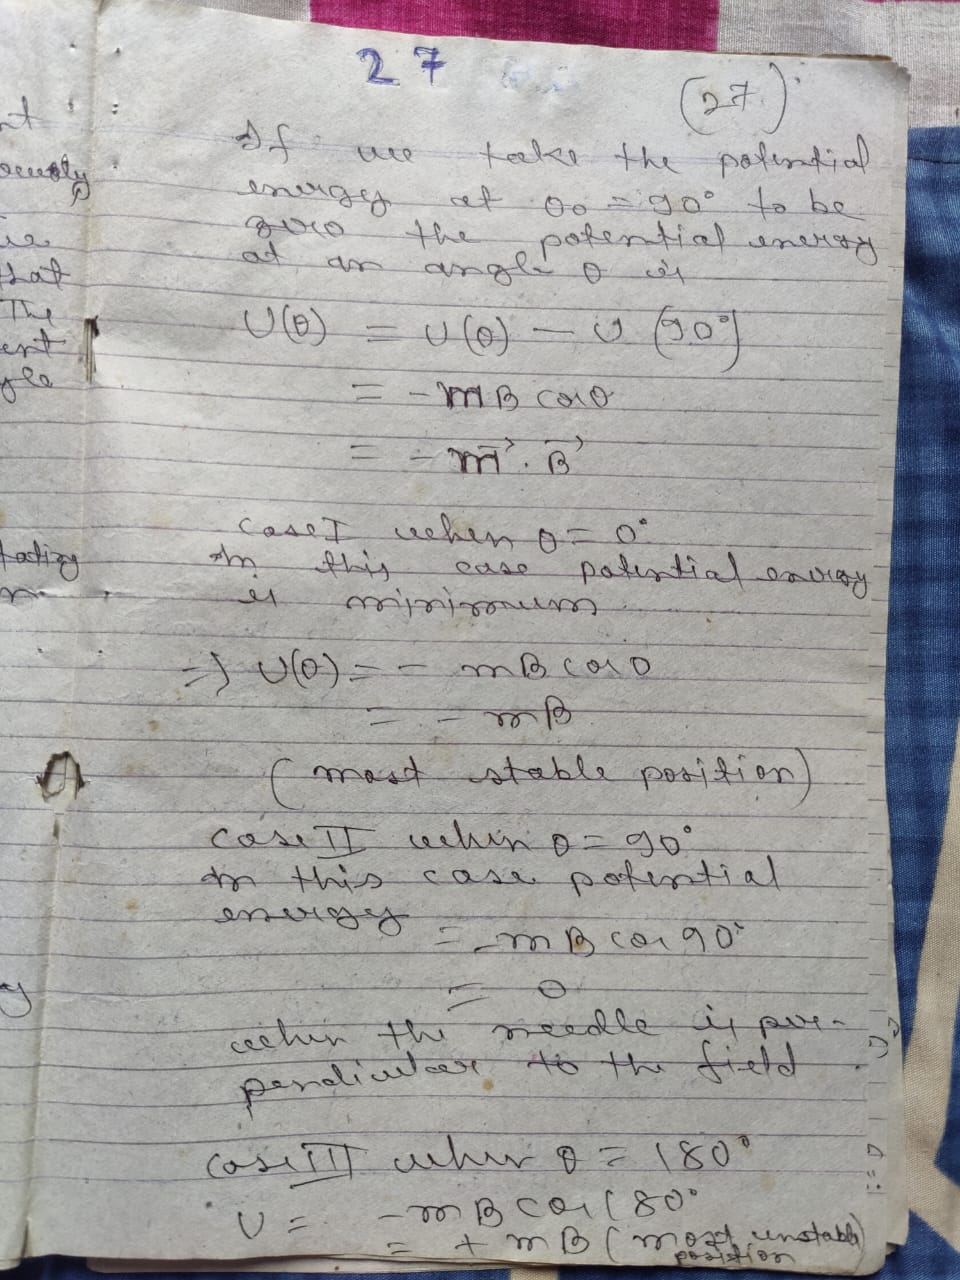 27
(27)
If we take the potential
energy at θ₀ = 90° to be
zero the potential energy
at an angle θ is
U(θ) = U(θ) — U (90°)
= - mB cos θ
= - m⃗ . B⃗
Case I when θ = 0°
In this case potential energy
is minimum
⇒ U(θ) = - mB cos 0
= - mB
(most stable position)
Case II when θ = 90°
In this case potential
energy
= - mB cos 90°
= 0
when the needle is per-
pendicular to the field
Case III when θ = 180°
U = - mB cos 180°
= + mB (most unstable
position
nt
that
The
ent
gle
tating
n
y